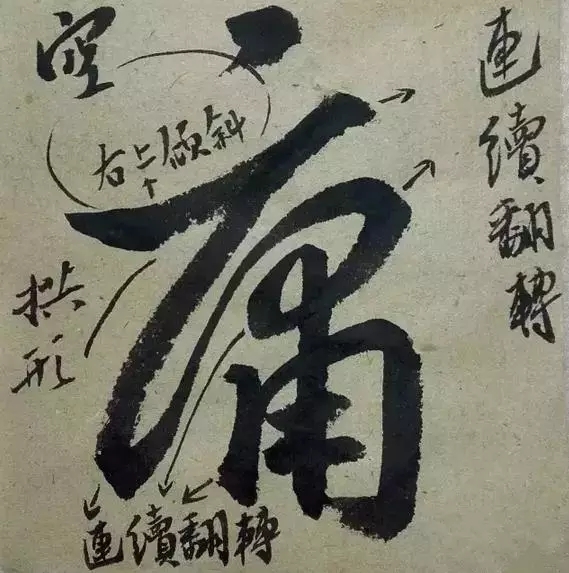 連續翻轉
空
右上倾斜
拱形
連續翻轉